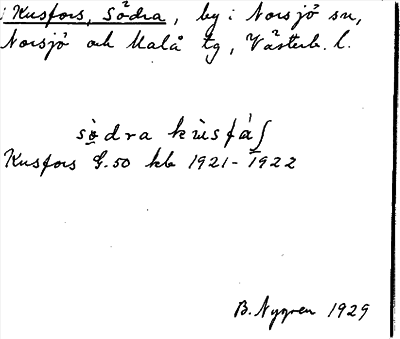 Kusfors, Södra, by i Norsjö sn,
Norsjö och Malå tg, Västerb. l.
södra kùsfáʃ
Kusfors G.50 kb 1921-1922
B. Nygren 1929